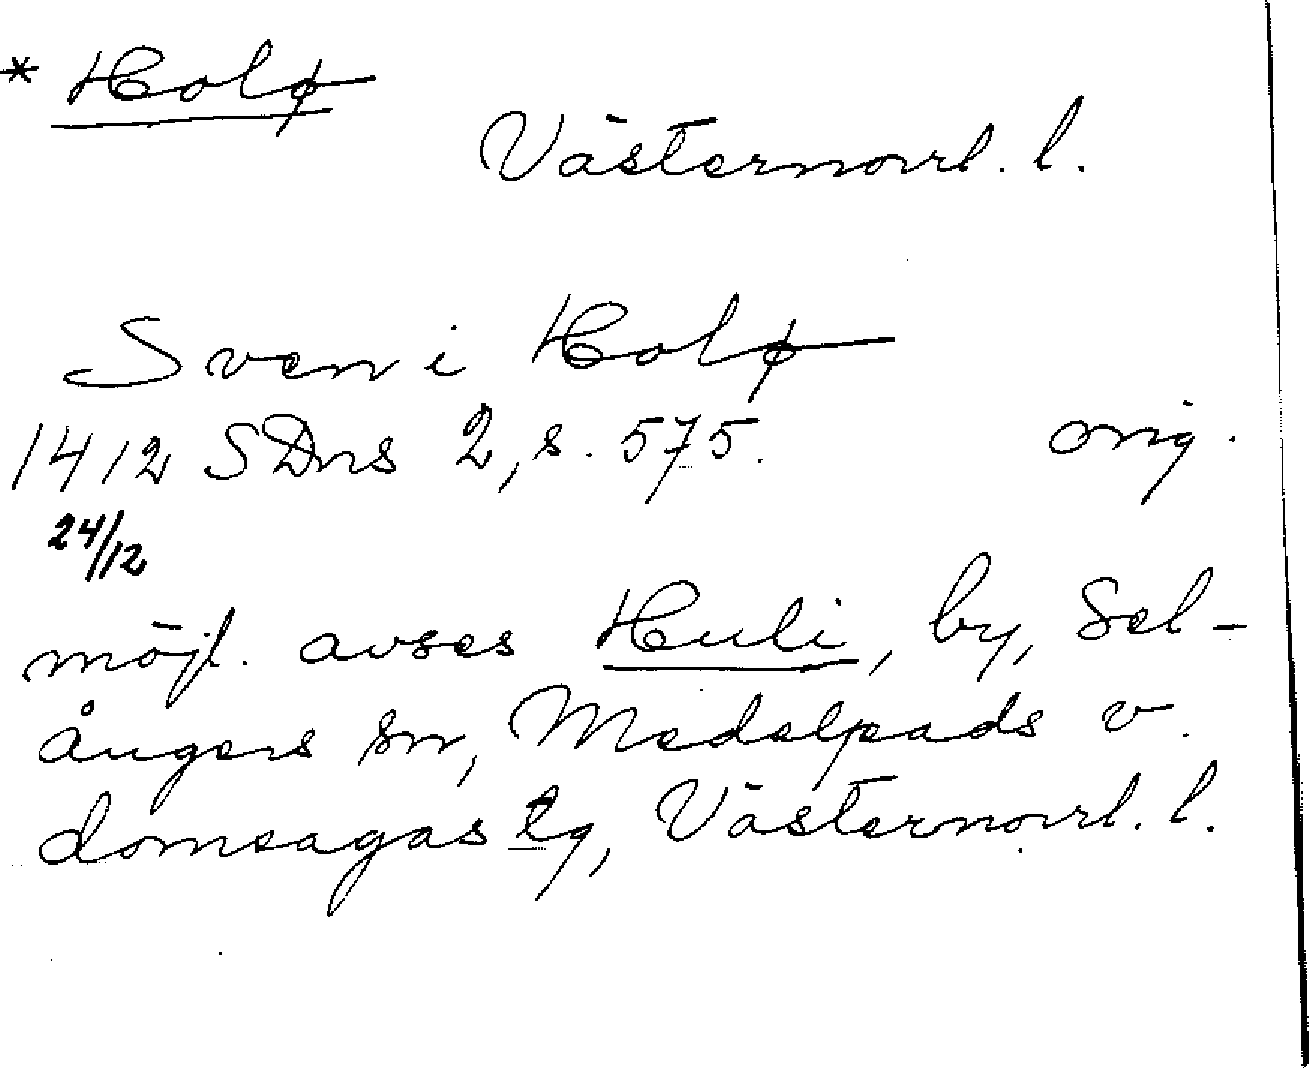 * Holø
Västernorrl. l.
Sven i Holø
1412 SDns 2, s. 575. orig.
24/12
möjl. avses Huli, by, Sel-
ångers sn, Medelpads v.
domsagas tg, Västernorrl. l.